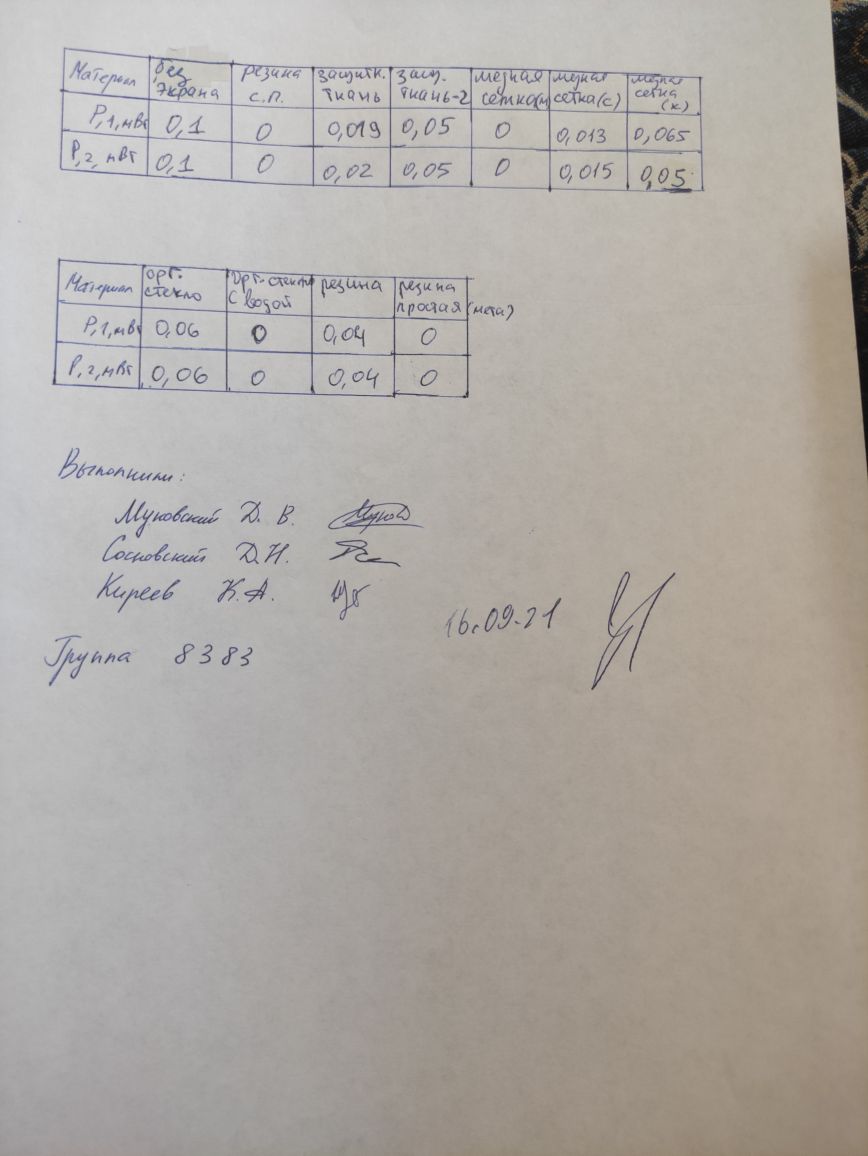 Материал без экрана резина с.п. защитн. ткань защ. ткань-2 медная сетка(м) медная сетка(с) медная сетка (к)
P,1,мВт 0,1 0 0,019 0,05 0 0,013 0,065
P,2,мВт 0,1 0 0,02 0,05 0 0,015 0,05
Материал орг. стекло Орг-стекло с водой резина резина простая (мета)
P,1,мВт 0,06 0 0,04 0
P,2,мВт 0,06 0 0,04 0
Выполнили:
Муковский Д. В.
Сосновский Д.Н.
Киреев К.А.
16.09.21
Группа 8383